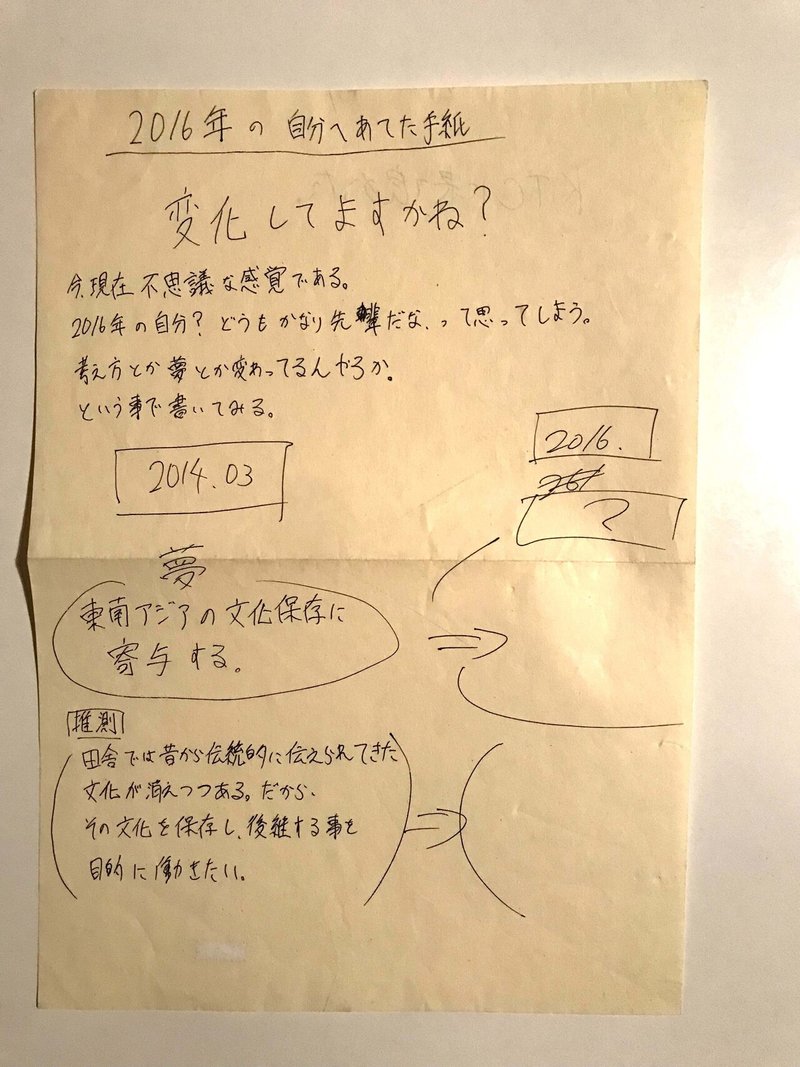 2016年の自分へあてた手紙
変化してますかね？
今、現在 不思議な感覚である。
2016年の自分？どうもかなり先輩だな、って思ってしまう。
考え方とか夢とか変わってるんやろか。
という事で書いてみる。
2014.03
2016.
?
夢
東南アジアの文化保存に
寄与する。
推測
田舎では昔から伝統的に伝えられてきた
文化が消えつつある。だから、
その文化を保存し、後継する事を
目的に働きたい。